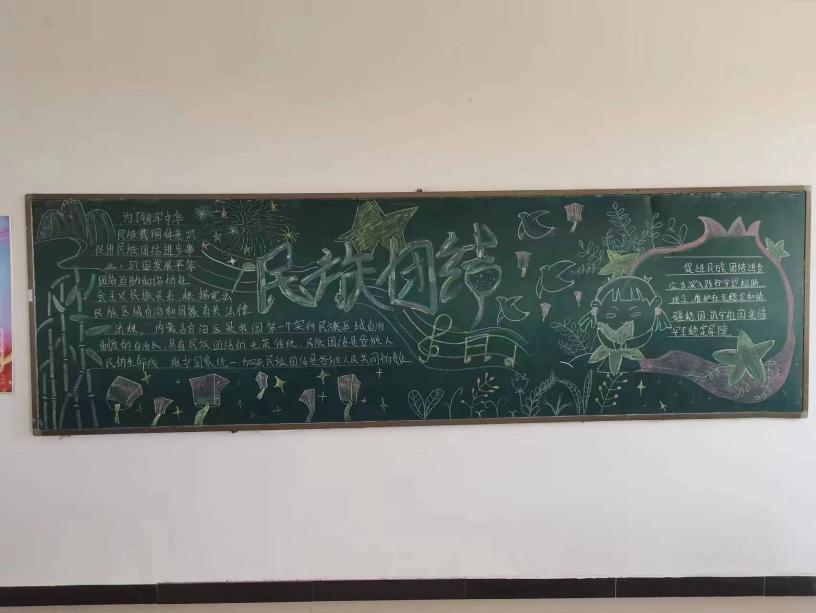 为了铸牢中华
民族共同体意识
促进民族团结进步事
业，巩固发展平等
团结互助和谐的社
会主义民族关系，根据宪法
民族区域自治和国家有关法律
法规，内蒙古自治区是我国第一个实行民族区域自治
制度的自治区，具有民族团结的光荣传统，民族团结是各族人
民的生命线，维护国家统一、加强民族团结是各族人民共同的责任
民族团结
促进民族团结进步
维护社会稳定和边
疆稳固 筑牢祖国北疆
安全稳定屏障